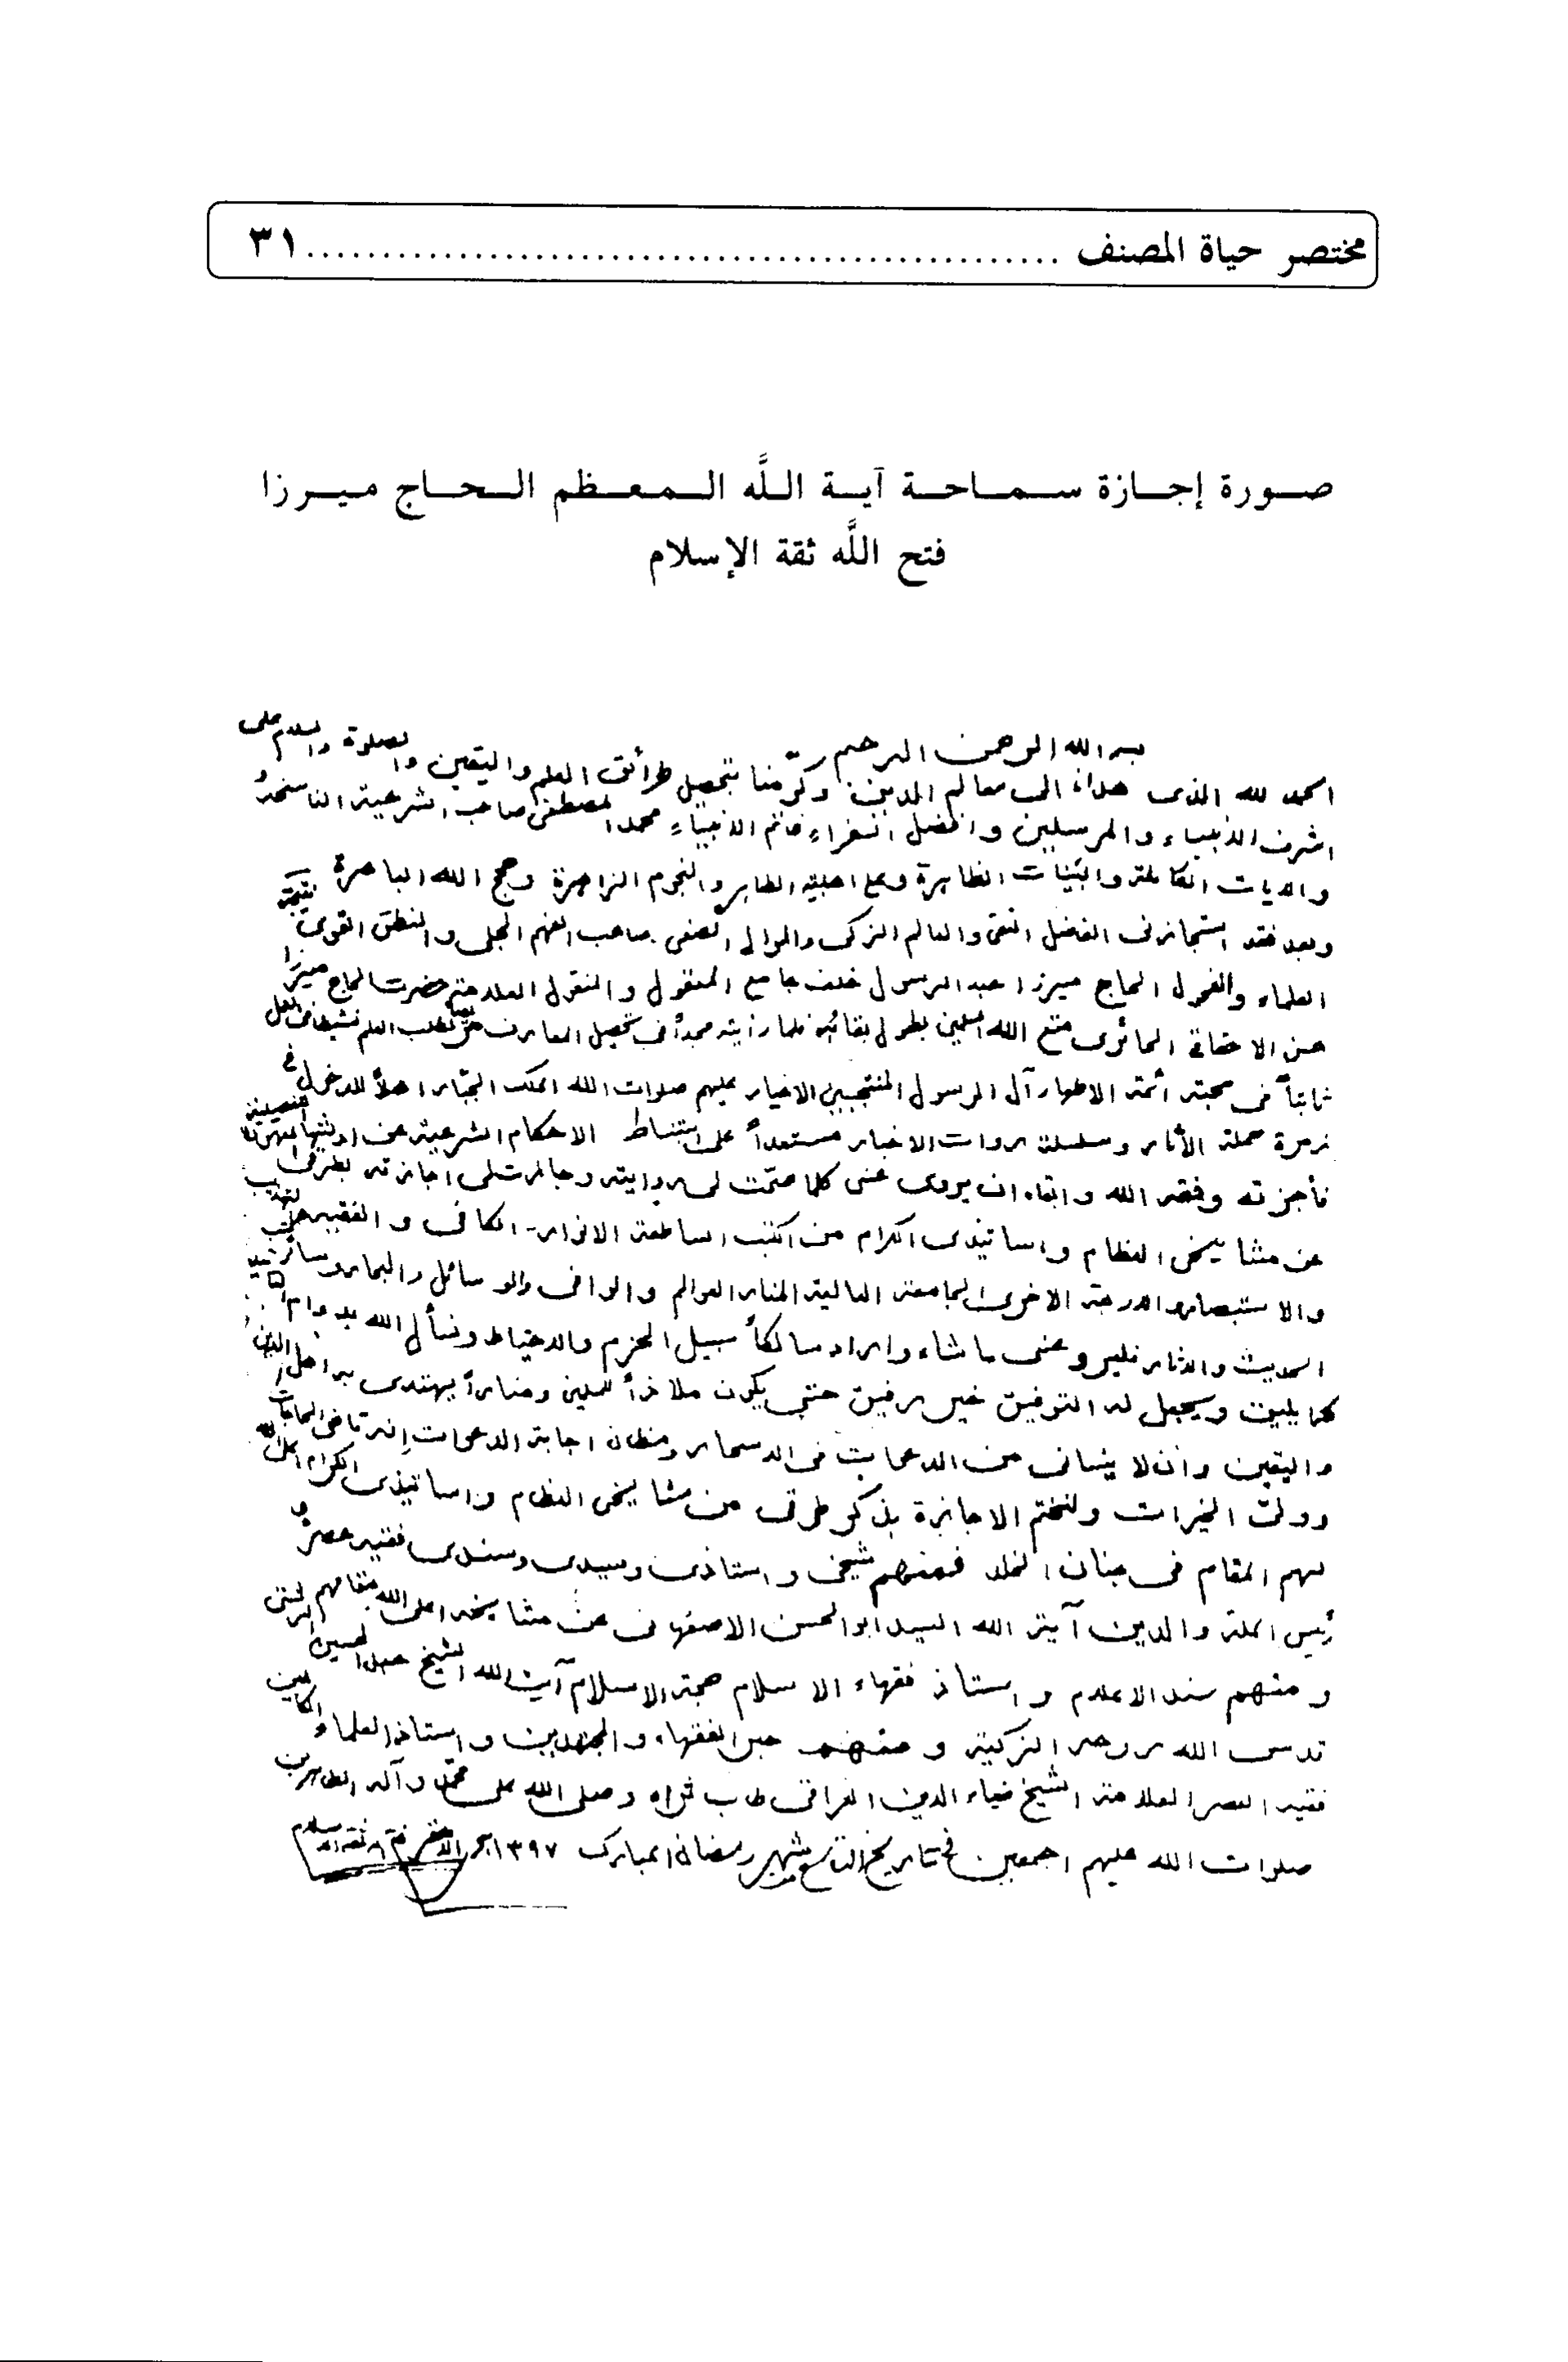 مختصر حياة المصنف ................................................ ٣١
صورة إجازة سماحة آية اللَّه المعظم الحاج ميرزا
فتح اللَّه ثقة الإسلام
بسم الله الرحمن الرحيم
الحمد لله الذى هدانا الى معالم الدين وكرّمنا بتحصيل طرائق العلم واليقين والصلوة والسلام على
اشرف الانبياء والمرسلين وافضل السفراء خاتم الانبياء محمد المصطفى صاحب الشرعية الناسخة
والايات الكاملة والبيّنات الظاهرة وعلى اهلبيته الطاهر والنجوم الزاهرة وحجج الله الباهرة
وبعد فقد استجازنى الفاضل التقى والعالم الزكى والموالى الصفى صاحب الفهم الجلى والنطق القوى نتيجة
العلماء والفحول الحاج ميرزا عبد الرسول خلف جامع المعقول والمنقول العلامة حضرت الحاج ميرزا
حسن الاحقاقى الحائرى متع الله المسلمين بطول بقائه فلما رأيته مجداً فى تحصيل المعارف لطلب العلم نشيطا فى العمل
ثابتاً فى محبة أئمة الاطهار آل الرسول المنتجبين الاخيار عليهم صلوات الله الملك الجبّار اهلاً للدخول فى
زمرة حملة الأثار وسلسلة روات الاخبار مستعداً على استنباط الاحكام الشرعية عن ادلتها التفصيلية
فأجزته وفقه الله وابقاه ان يروى عنى كلما صحّت لى روايته وجازت لى اجازته بطرقى
عن مشايخى العظام واساتيذى الكرام من الكتب الساطعة الانوار الكافى والفقيه والتهذيب
والاستبصار والدرجة الاخرى الجامعة العالية المنار العوالم والوافى والوسائل والبحار وسائر
الحديث والاثار فليرو عنى ما شاء واراد سالكاً سبيل الحزم والاحتياط ونسأل الله بدوام
كما يليق ويجعل له التوفيق خير رفيق حتى يكون ملاذاً للمسلمين ومناراً يهتدى به اهل الدين
واليقين وان لا ينسانى من الدعوات فى الاسحار ومظان اجابة الدعوات إنه قاضى الحاجات
وولى الخيرات ولنختم الاجازة بذكر طرقى من مشايخى العظام واساتيذى الكرام
لهم المقام فى جنان الخلد فمنهم شيخى واستاذى وسيدى وسندى فقيه عصره
رئيس الملة والدين آية الله السيد ابوالحسن الاصفهانى عن مشايخه اعلى الله مقامهم
ومنهم سند الاعلام واستاذ فقهاء الاسلام حجة الاسلام آيت الله الشيخ عبد الحسين الرشتى
قدس الله روحه الزكية ومنهم حبر الفقهاء والمجتهدين واستاذ العلماء الكاملين
فقيه العصر العلامة الشيخ ضياء الدين العراقى طاب ثراه وصلى الله على محمّد وآله الطاهرين
صلوات الله عليهم اجمعين فى تاريخ التاسع شهر رمضان المبارك ١٣٩٧ ثقة الاسلام